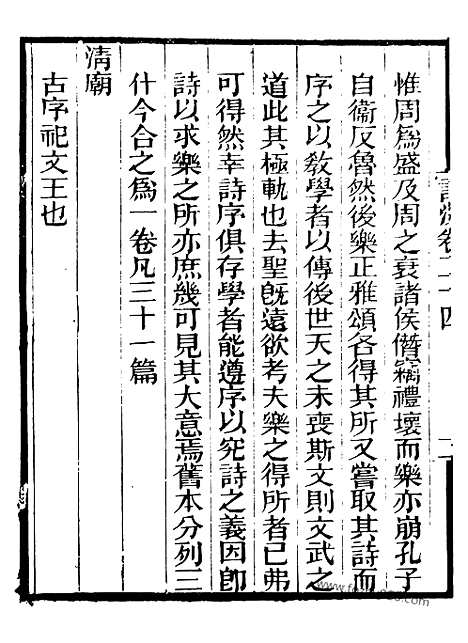 惟周爲盛及周之衰諸侯僭竊禮壞而樂亦崩孔子
自衞反魯然後樂正雅頌各得其所又嘗取其詩而
序之以敎學者以傳後世天之未喪斯文則文武之
道此其極軌也去聖旣遠欲考夫樂之得所者已弗
可得然幸詩序俱存學者能遵序以究詩之義因卽
詩以求樂之所亦庶幾可見其大意焉舊本分列三
什今合之爲一卷凡三十一篇
清廟
古序祀文王也